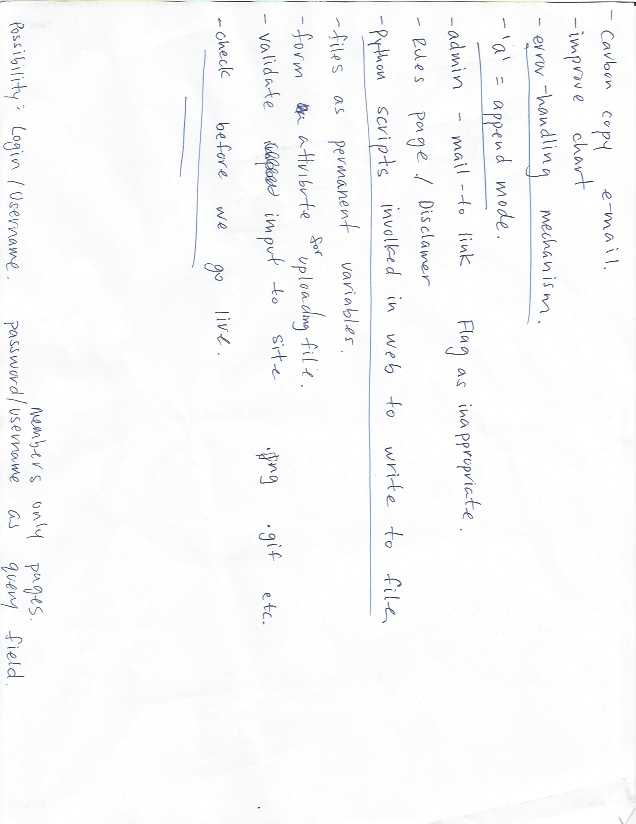 - Carbon copy e-mail.
- improve chart
- error-handling mechanism.
- 'a' = append mode.
- admin - mail-to link Flag as inappropriate.
- Rules page / Disclamer
- Python scripts involked in web to write to file
- files as permanent variables.
- form attribute for uploading file.
- validate imput to site .png .gif etc.
- check before we go live.
members only pages.
Possibility: Login / Username. password/username as query field.